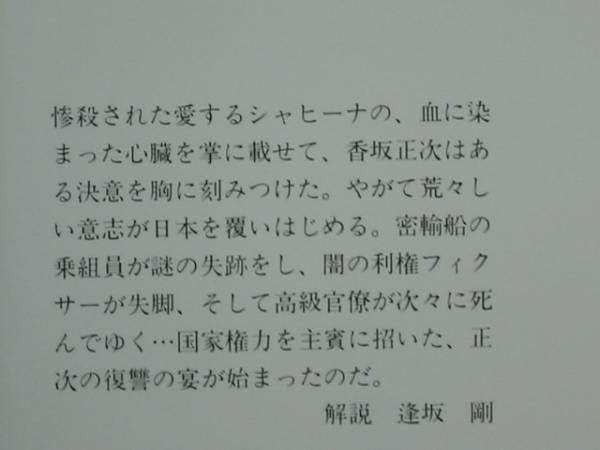 惨殺された愛するシャヒーナの、血に染
まった心臓を掌に載せて、香坂正次はあ
る決意を胸に刻みつけた。やがて荒々し
い意志が日本を覆いはじめる。密輸船の
乗組員が謎の失跡をし、闇の利権フィク
サーが失脚、そして高級官僚が次々に死
んでゆく…国家権力を主賓に招いた、正
次の復讐の宴が始まったのだ。
解説　逢坂　剛